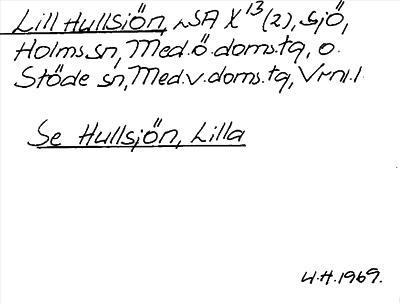 Lill Hullsjön, NSA X 13 (2), sjö,
Holms sn, Med.ö.doms.tg, o.
Stöde sn, Med.v.doms.tg, Vrnl.l.
Se Hullsjön, Lilla
U.H. 1969.